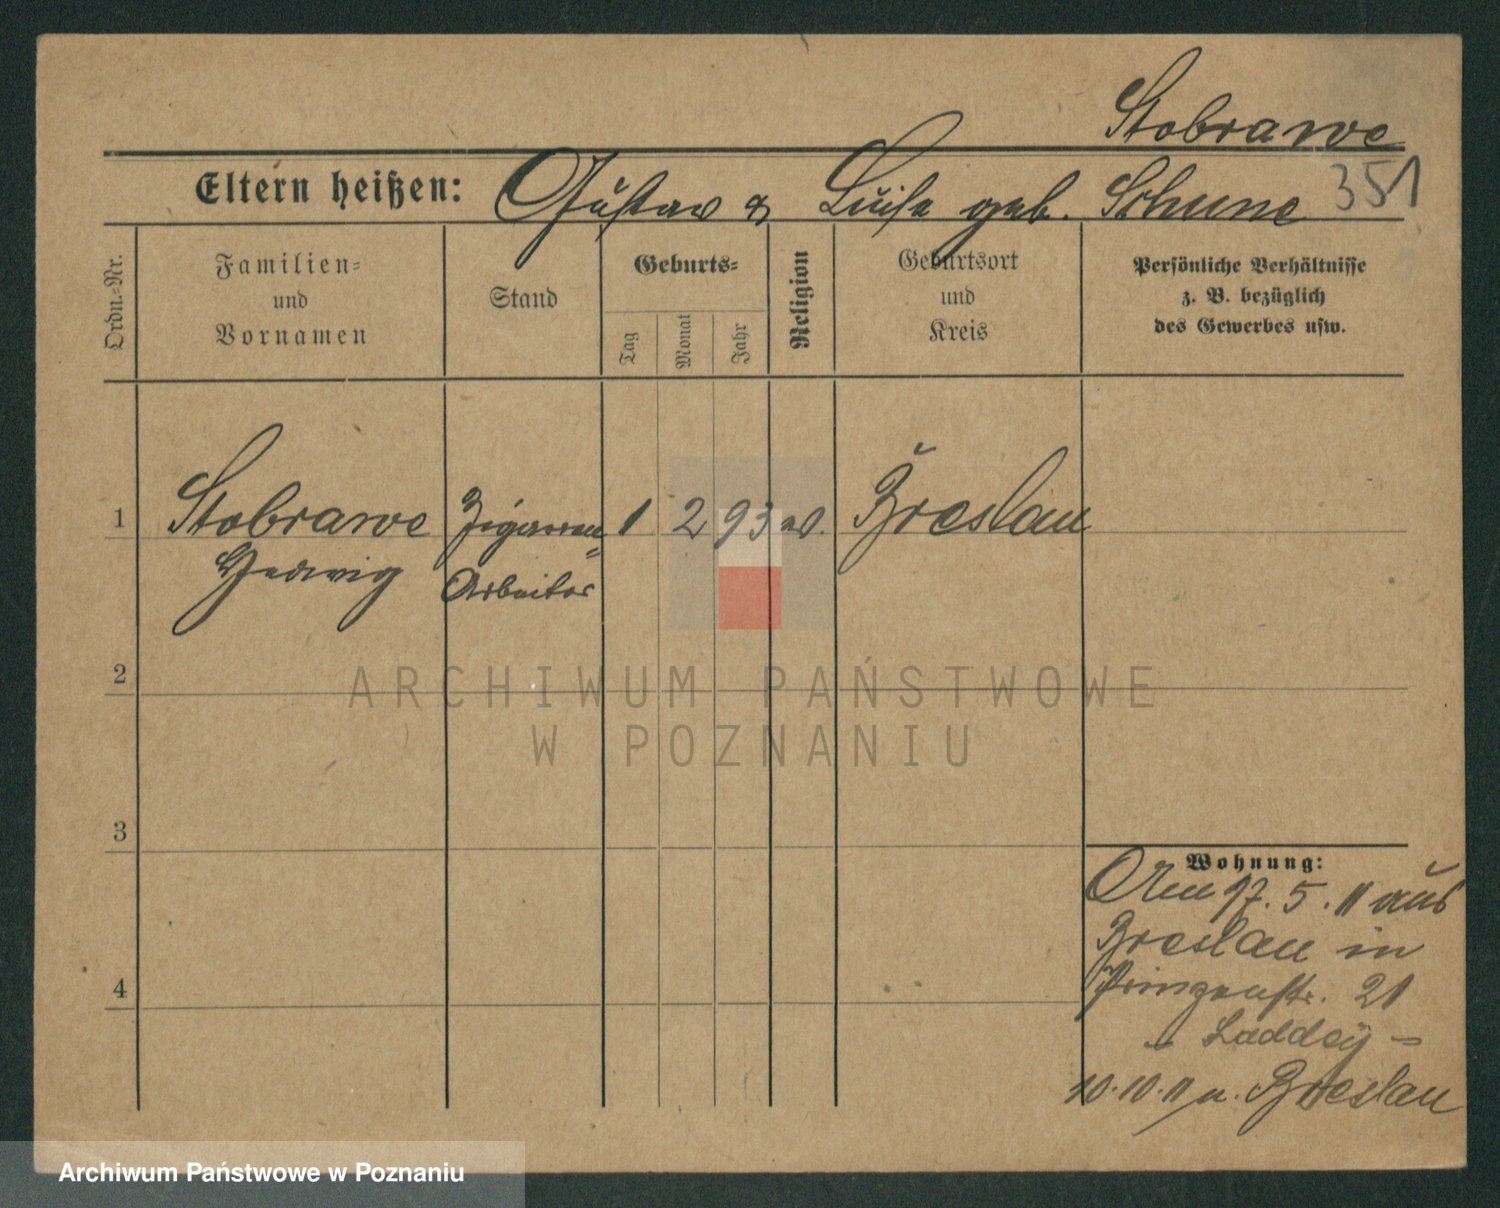 Stobrawe
351
Eltern heißen: Gustav & Luise geb. Schunc
Ordn.=Nr.
Familien=
und
Vornamen
Stand
Geburts=
Tag
Monat
Jahr
Religion
Geburtsort
und
Kreis
Persönliche Verhältnisse
z. B. bezüglich
des Gewerbes usw.
1 Stobrawe Zigarren= 1 2 93 Breslau
Hedwig Arbeiter
2
3
4
Wohnung:
Am 17. 5. 11 aus
Breslau in
Prinzenstr. 21
- Laddey -
10.10.11 n. Breslau
ARCHIWUM PAŃSTWOWE
W POZNANIU
Archiwum Państwowe w Poznaniu